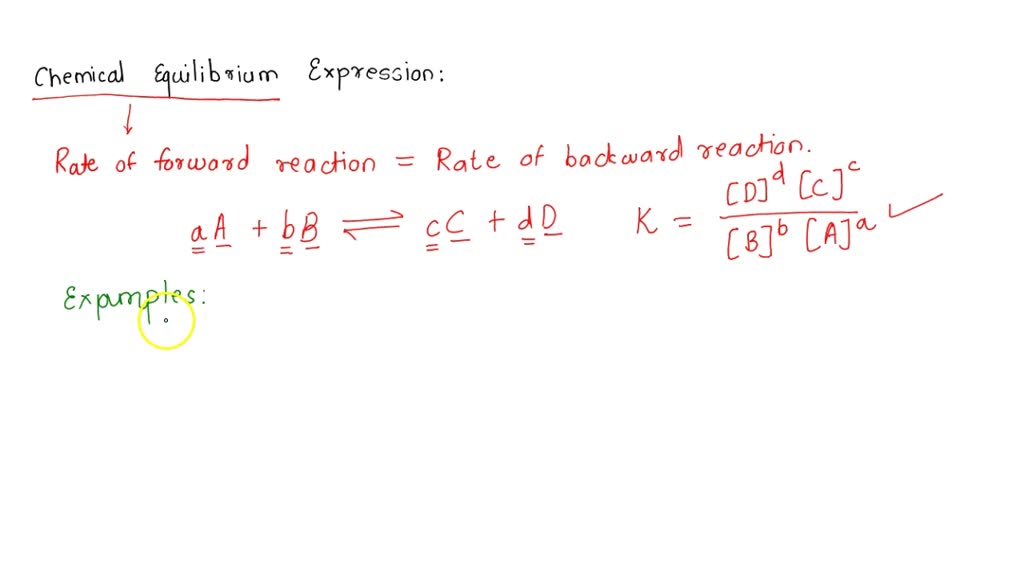 Chemical Equilibrium Expression:
Rate of forward reaction = Rate of backward reaction.
aA + bB ⇌ cC + dD K = [D]^d [C]^c / [B]^b [A]^a
Examples: